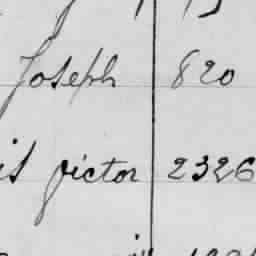 Joseph 820
is victor 2326